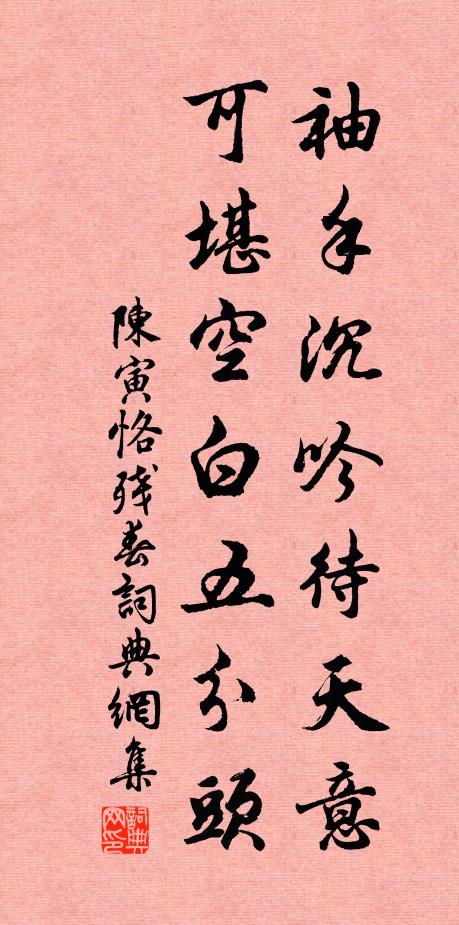 袖手沉吟待天意
可堪空白五分頭
陳寅恪殘春詞典網集
詞典网印